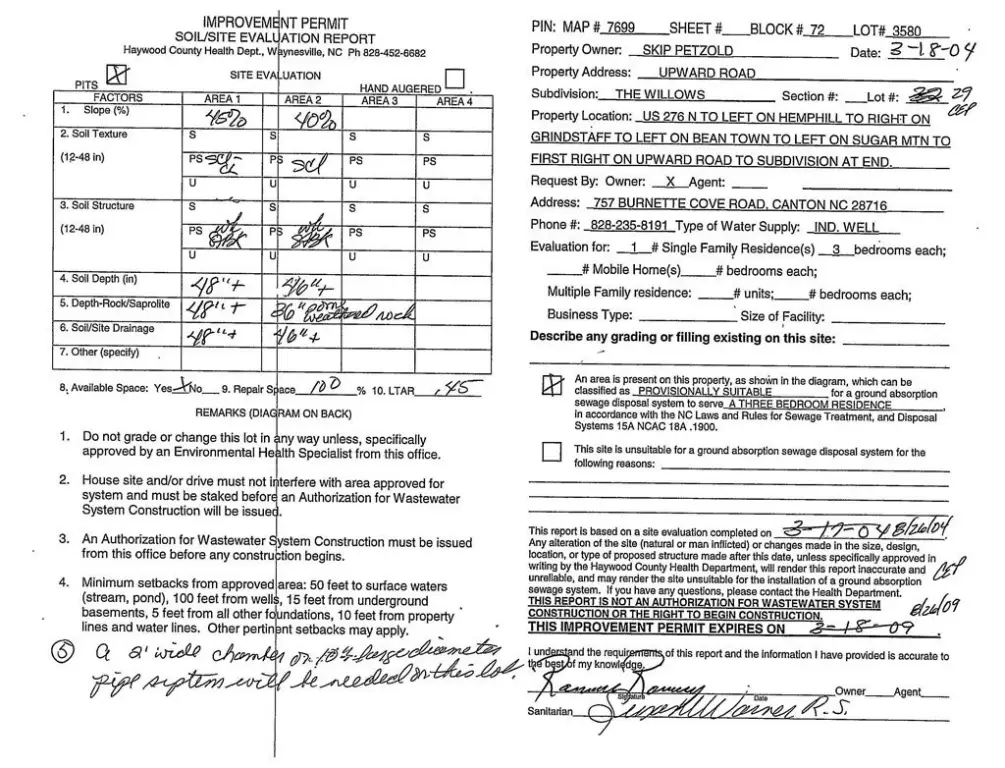 IMPROVEMENT PERMIT
SOIL/SITE EVALUATION REPORT
Haywood County Health Dept., Waynesville, NC Ph 828-452-6682
PITS SITE EVALUATION HAND AUGERED
FACTORS AREA 1 AREA 2 AREA 3 AREA 4
1. Slope (%) 45% 40%
2. Soil Texture S S S S
(12-48 in) PS SCL-CL PS SCL PS PS
U U U U
3. Soil Structure S S S S
(12-48 in) PS wk SBK PS wk SBK PS PS
U U U U
4. Soil Depth (in) 48"+ 46"+
5. Depth-Rock/Saprolite 48"+ 36" weathered rock
6. Soil/Site Drainage 48"+ 46"+
7. Other (specify)
8. Available Space: Yes X No 9. Repair Space 100 % 10. LTAR .45
REMARKS (DIAGRAM ON BACK)
1. Do not grade or change this lot in any way unless, specifically
approved by an Environmental Health Specialist from this office.
2. House site and/or drive must not interfere with area approved for
system and must be staked before an Authorization for Wastewater
System Construction will be issued.
3. An Authorization for Wastewater System Construction must be issued
from this office before any construction begins.
4. Minimum setbacks from approved area: 50 feet to surface waters
(stream, pond), 100 feet from wells, 15 feet from underground
basements, 5 feet from all other foundations, 10 feet from property
lines and water lines. Other pertinent setbacks may apply.
5 A 2' wide chamber or large diameter
pipe system will be needed on this lot.
PIN: MAP # 7699 SHEET # BLOCK # 72 LOT# 3580
Property Owner: SKIP PETZOLD Date: 3-18-04
Property Address: UPWARD ROAD
Subdivision: THE WILLOWS Section #: Lot #: 29
CEP
Property Location: US 276 N TO LEFT ON HEMPHILL TO RIGHT ON
GRINDSTAFF TO LEFT ON BEAN TOWN TO LEFT ON SUGAR MTN TO
FIRST RIGHT ON UPWARD ROAD TO SUBDIVISION AT END.
Request By: Owner: X Agent:
Address: 757 BURNETTE COVE ROAD, CANTON NC 28716
Phone #: 828-235-8191 Type of Water Supply: IND. WELL
Evaluation for: 1 # Single Family Residence(s) 3 bedrooms each;
# Mobile Home(s) # bedrooms each;
Multiple Family residence: # units; # bedrooms each;
Business Type: Size of Facility:
Describe any grading or filling existing on this site:
An area is present on this property, as shown in the diagram, which can be
classified as PROVISIONALLY SUITABLE for a ground absorption
sewage disposal system to serve A THREE BEDROOM RESIDENCE,
in accordance with the NC Laws and Rules for Sewage Treatment, and Disposal
Systems 15A NCAC 18A .1900.
This site is unsuitable for a ground absorption sewage disposal system for the
following reasons:
This report is based on a site evaluation completed on 3-17-04 8/26/04.
Any alteration of the site (natural or man inflicted) or changes made in the size, design,
location, or type of proposed structure made after this date, unless specifically approved in
writing by the Haywood County Health Department, will render this report inaccurate and
unreliable, and may render the site unsuitable for the installation of a ground absorption
sewage system. If you have any questions, please contact the Health Department.
CEP
THIS REPORT IS NOT AN AUTHORIZATION FOR WASTEWATER SYSTEM
CONSTRUCTION OR THE RIGHT TO BEGIN CONSTRUCTION.
8/26/09
THIS IMPROVEMENT PERMIT EXPIRES ON 3-18-09.
I understand the requirements of this report and the information I have provided is accurate to
the best of my knowledge.
Signature Date Owner Agent
Sanitarian Warner R.S.